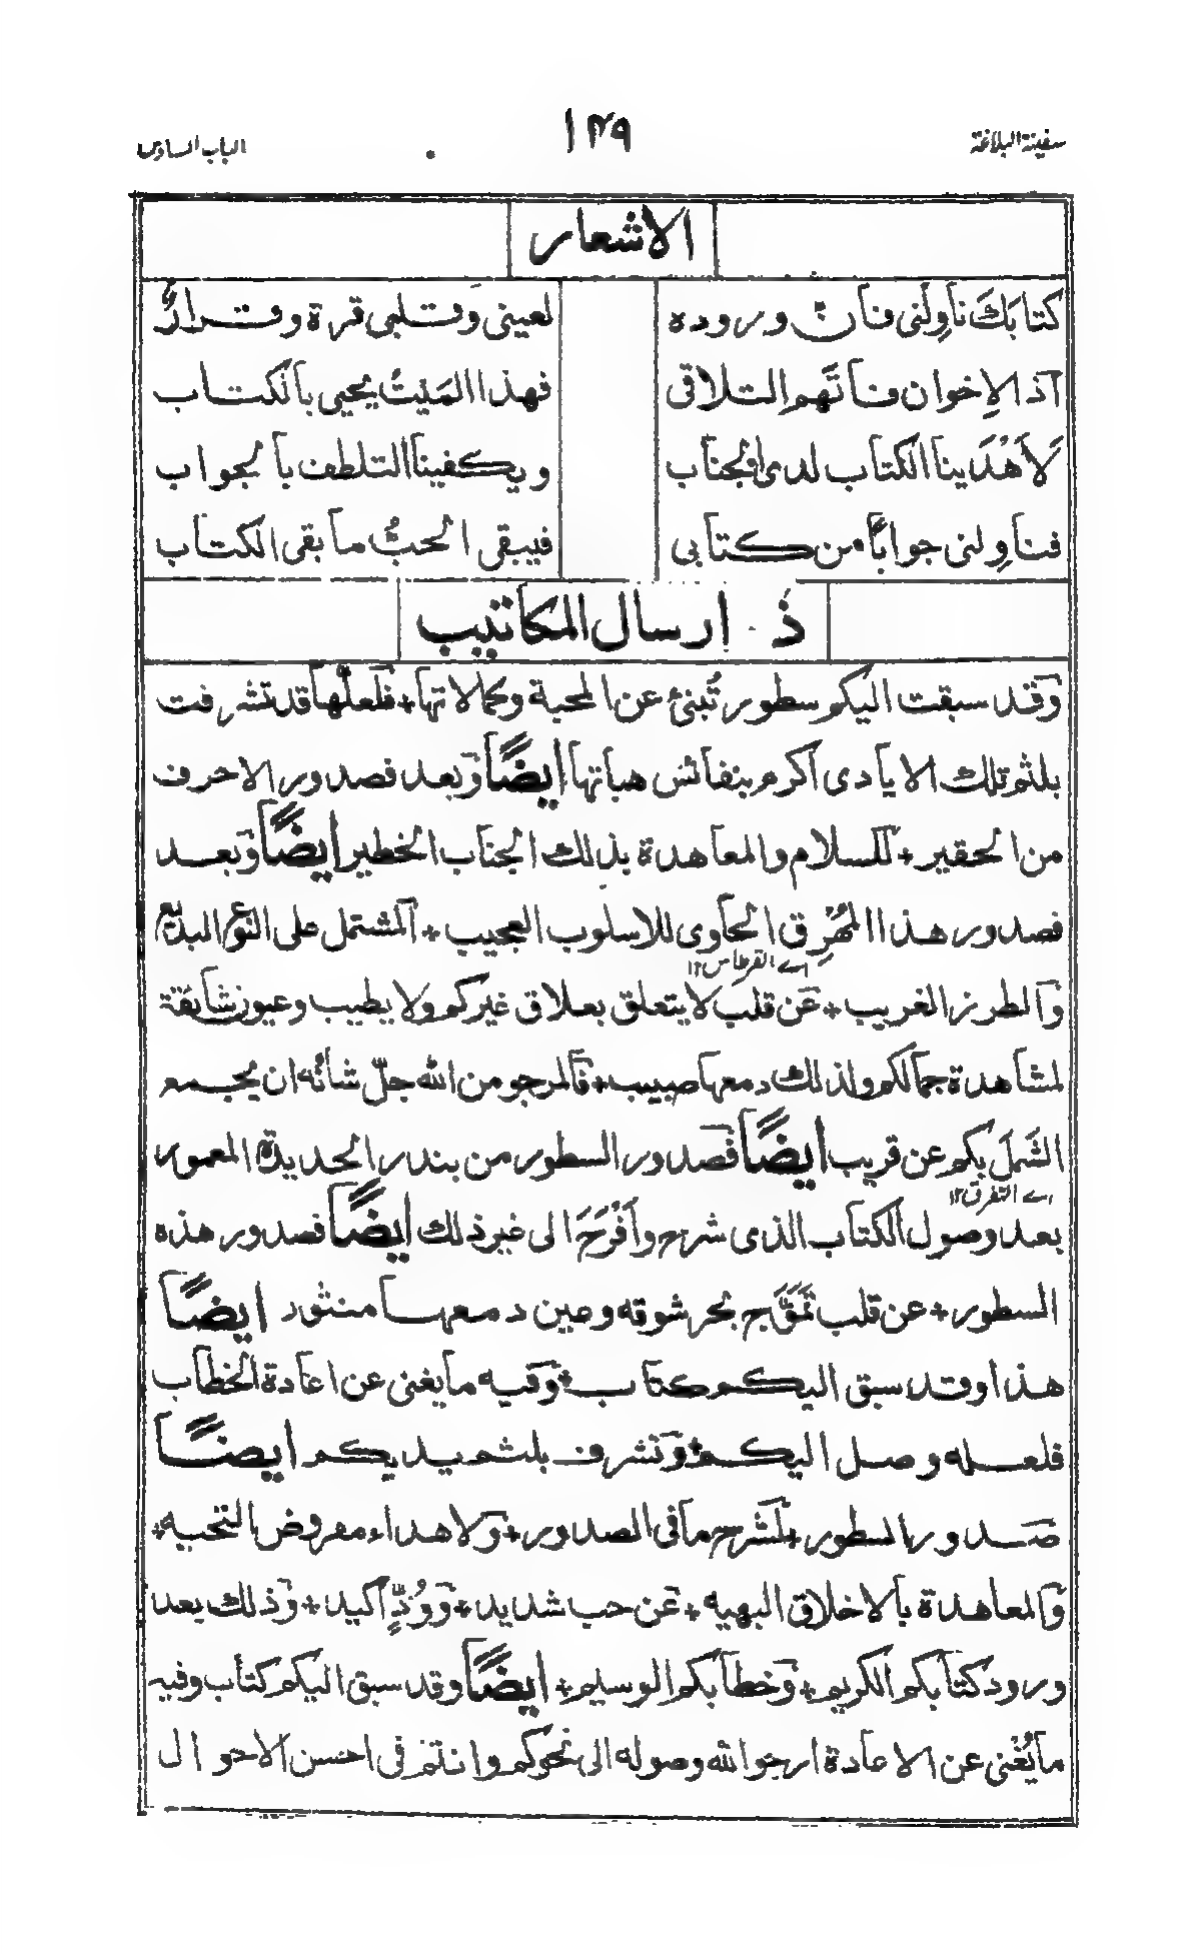 سفينة البلاغة
١٢٩
الباب السادس
الاشعار
كتابك ناولنى فان وروده لعينى وقلبى قرة وقرارٌ
آذ الاِخوان فاتَهم التلاقى فهذا المَيْتُ يحيى بالكتاب
لَأهْدَينا الكتاب لدى الجناب ويكفينا التلطف بالجواب
فناوِلنى جوابًا من كتابى فيبقى الحبُّ ما بقى الكتاب
ذ . ارسال المكاتيب
وقد سبقت اليكم سطور تُنبئ عن المحبة وكمالاتها + فلعلّها قد تشرفت
بلثم تلك الايادى اكرم بنفائس هباتها ايضًا وبعد فصدور الاحرف
من الحقير + للسلام والمعاهدة بذلك الجناب الخطير ايضًا وبعد
فصدور هذا المُهْرِق الحاوى للاسلوب العجيب + المشتمل على النوع البديع
اے القرطاس ١٢
والطرز الغريب + عن قلب لا يتعلق بعلاق غيركم ولا يطيب وعيون شايقة
لمشاهدة جمالكم ولذلك دمعها صبيب + فالمرجو من الله جلّ شانُه ان يجمع
الشَملَ بكم عن قريب ايضًا فصدور السطور من بندر الحديدة المعمور
اے التفرق ١٢
بعد وصول الكتاب الذى شرح وأَفْرَحَ الى غير ذلك ايضًا فصدور هذه
السطور + عن قلب تمَوَّج بحر شوقه وعين دمعها منثور ايضًا
هذا وقد سبق اليكم كتاب + وفيه ما يغنى عن اعادة الخطاب
فلعله وصل اليكم + وتشرف بلثم يديكم ايضًا
صدور السطور + لشرح ما فى الصدور + ولاهداء مفروض التحيه +
والمعاهدة بالاخلاق البهيه + عن حب شديد + ووُدٍّ اكيد + وذلك بعد
ورود كتابكم الكريم + وخطابكم الوسيم + ايضًا وقد سبق اليكم كتاب وفيه
ما يُغْنى عن الاعادة ارجو الله وصوله الى نحوكم وانتم فى احسن الاحوال